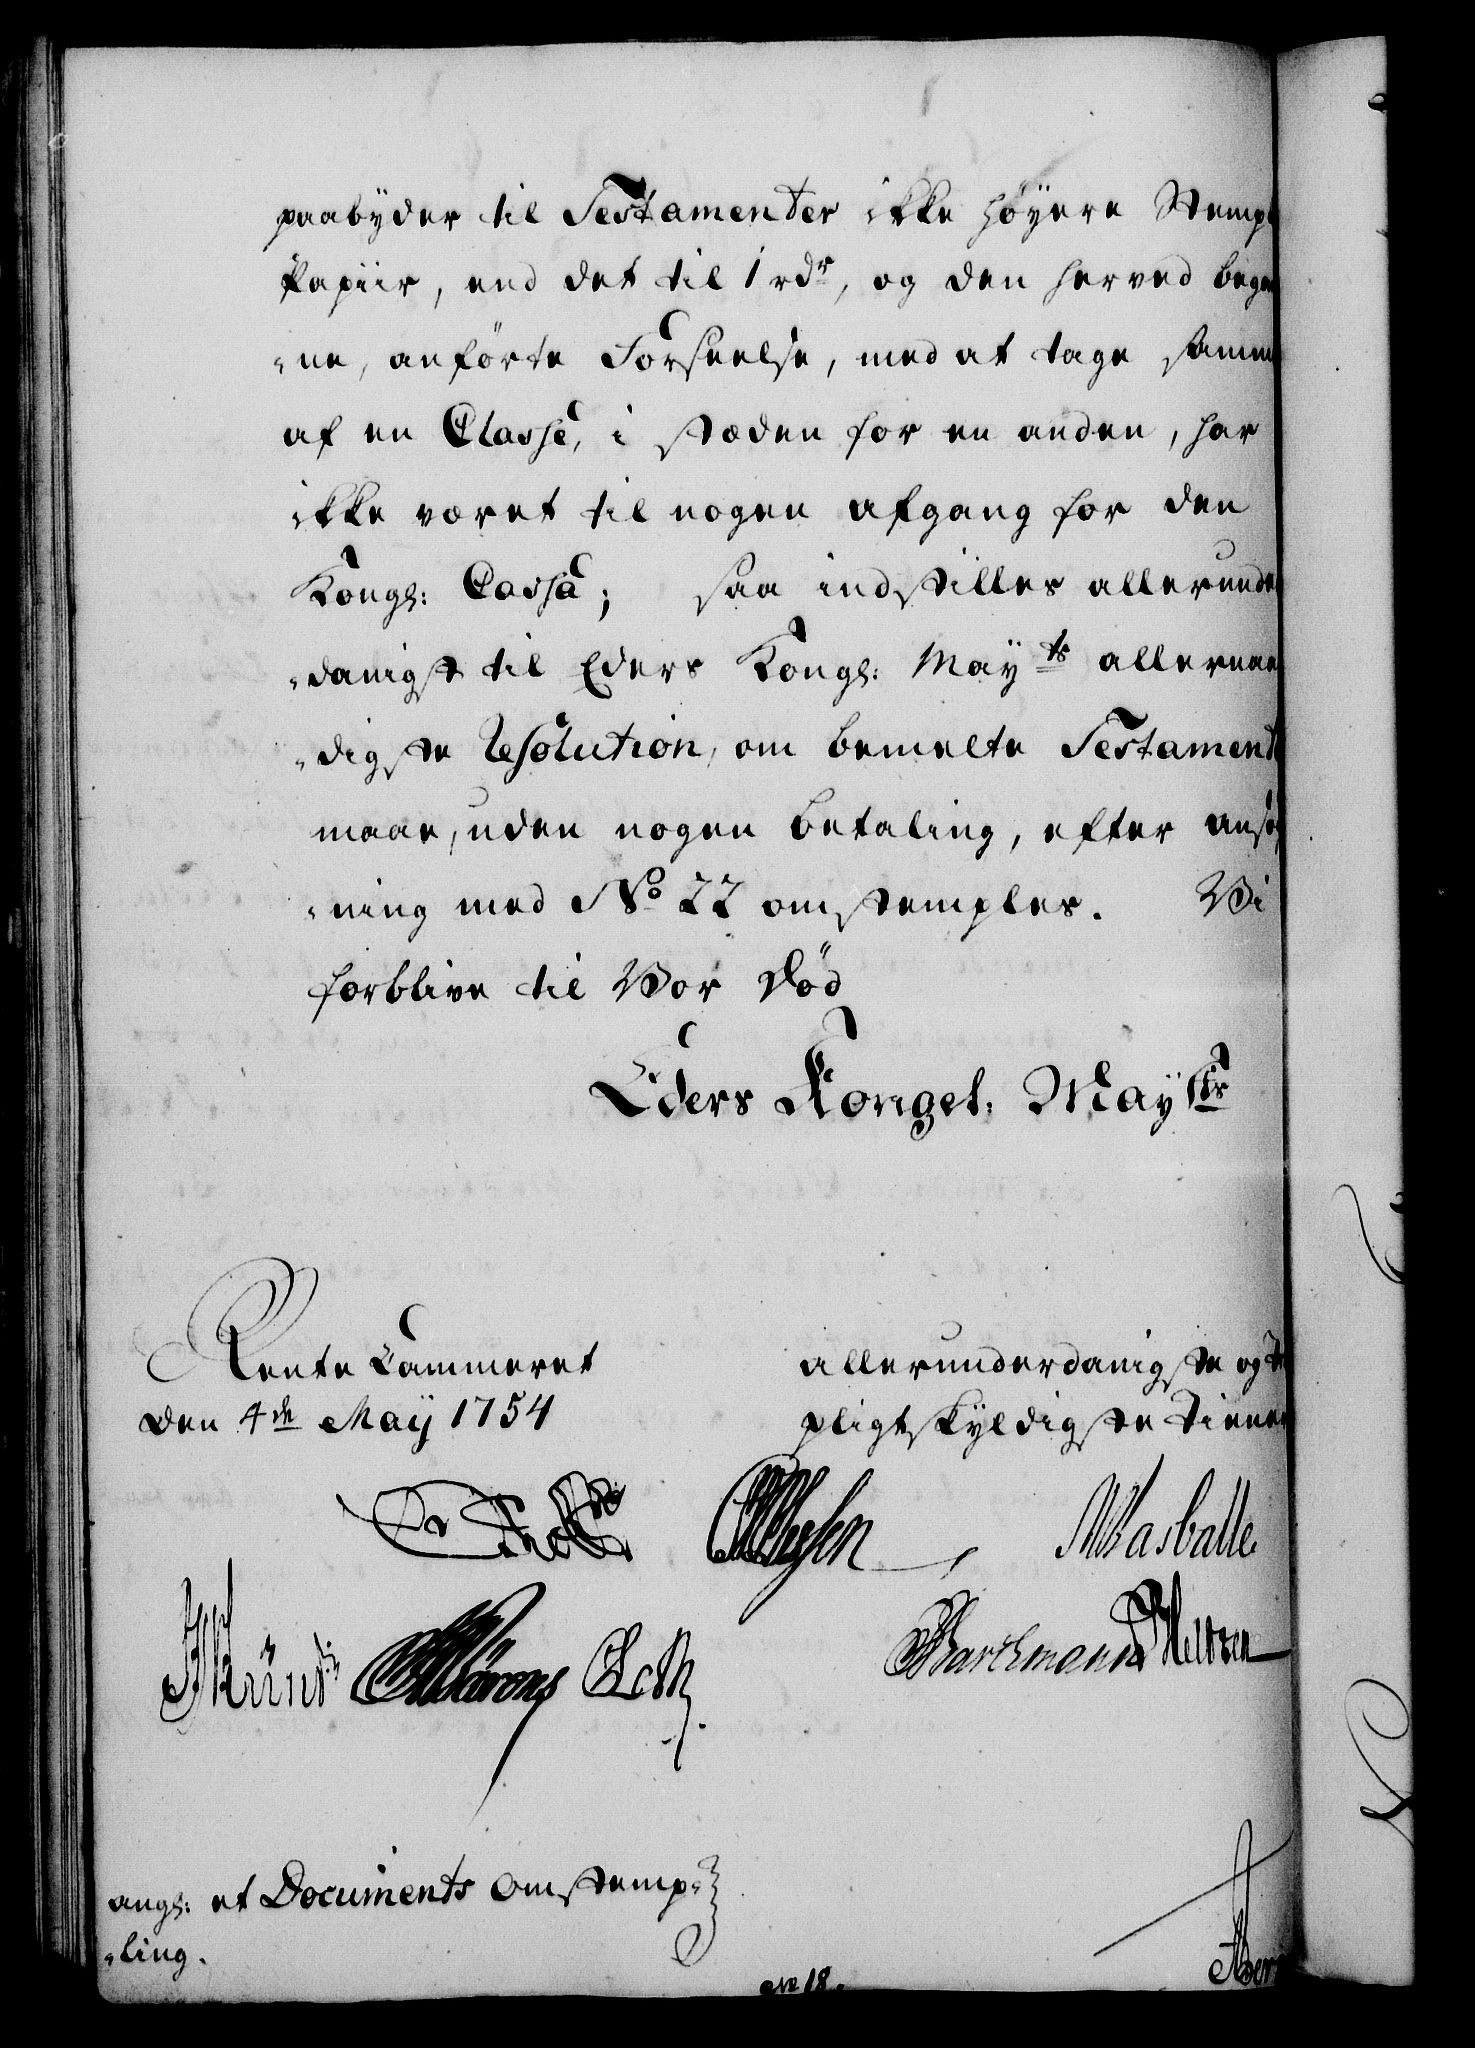 paabyder til Testamenter ikke høyere Stempl
Papiir, end det til 1 rdr, og den herved begaa
-ne, anførte Forseelse, med at tage Samme
af en Classe, i stæden for en anden, har
ikke været til nogen afgang for den
Kongl: Cassa; saa indstilles allerunder
-danigst til Eders Kongl: Mayts allernaa
-digste Resolution, om bemelte Testament
maae, uden nogen betaling, efter ansøg
-ning med No 22 omstemples. Vi
forblive til Vor Død
Eders Kongel. Mayts
Rente Cammeret
den 4de Maij 1754
allerunderdanigste og
pligtskyldigste Tiener
Holst
Masballe
Barthmann
angl: et Documents omstemp-
-ling.
No 18.